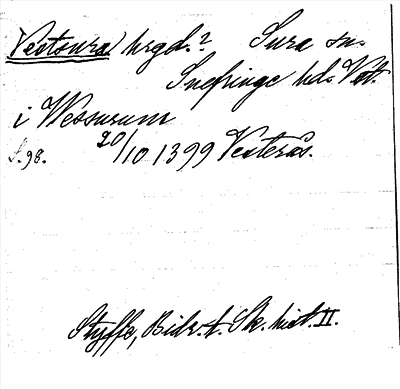 Vestsura hrgd.? Sura sn.
Snefringe hd. Vstm.
i Wessurum
s. 98. 20/10 1399 Vesterås.
Styffe, Bidr. t. Sk. hist. II.